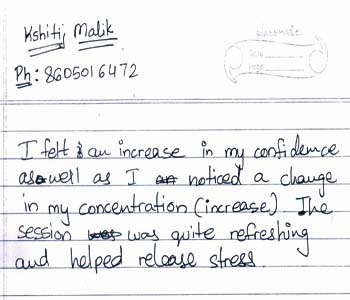 Kshitij Malik
classmate
Date
Page
Ph: 8605016472
I felt an increase in my confidence
as well as I noticed a change
in my concentration (increase). The
session was quite refreshing
and helped release stress.